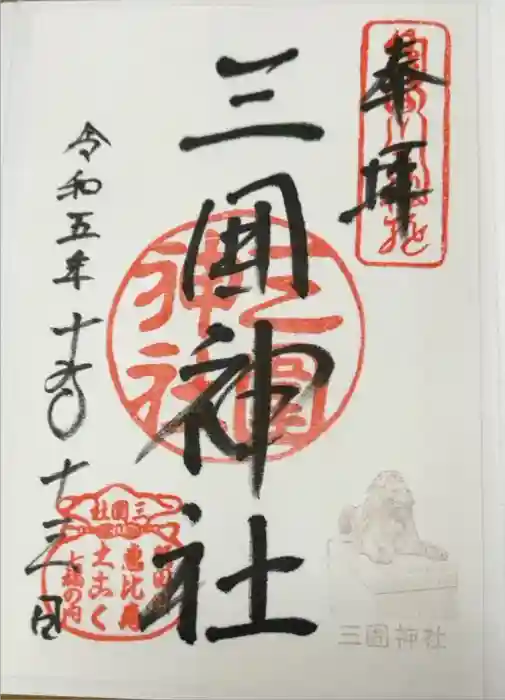 奉拝
三囲神社
三圍
神社
令和五年
十三日
三囲社
恵比寿
大こく
七福の内
三圍神社